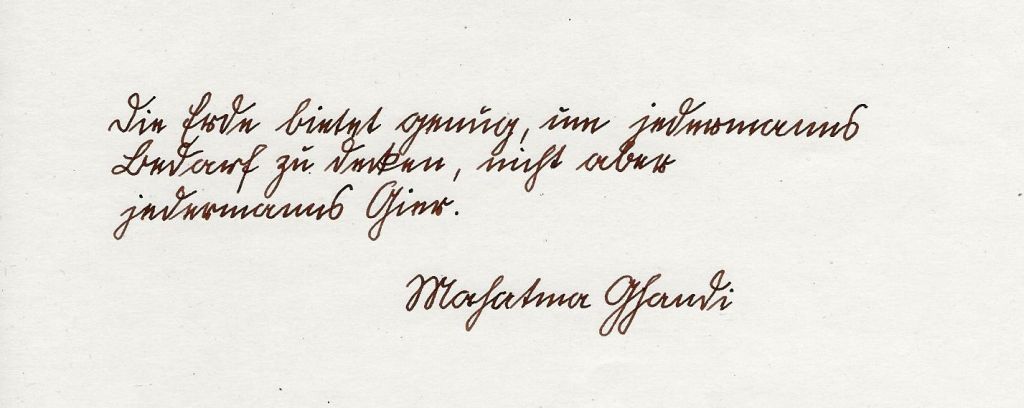 Die Erde bietet genug, um jedermanns
Bedarf zu decken, nicht aber
jedermanns Gier.
Mahatma Ghandi